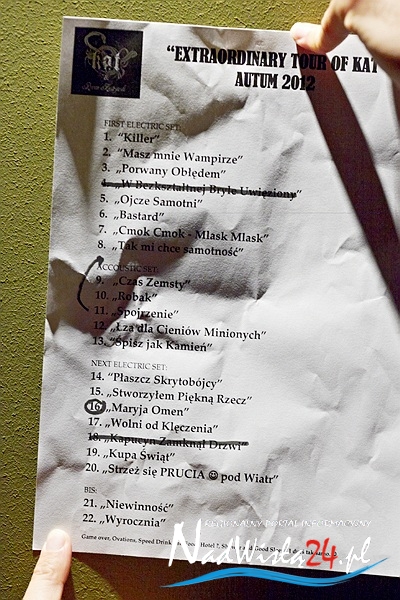 kat
"EXTRAORDINARY TOUR OF KAT
AUTUM 2012
FIRST ELECTRIC SET:
1. "Killer"
2. "Masz mnie Wampirze"
3. „Porwany Obłędem"
4. „W Bezkształtnej Bryle Uwięziony"
5. „Ojcze Samotni"
6. „Bastard"
7. „Cmok Cmok - Mlask Mlask"
8. „Tak mi chce samotność"
ACCOUSTIC SET:
9. „Czas Zemsty"
10. „Robak"
11. „Spojrzenie"
12. „Łza dla Cieniów Minionych"
13. „Śpisz jak Kamień"
NEXT ELECTRIC SET:
14. "Płaszcz Skrytobójcy"
15. „Stworzyłem Piękną Rzecz"
16. „Maryja Omen"
17. „Wolni od Klęczenia"
18. „Kapucyn Zamknął Drzwi"
19. „Kupa Świąt"
20. „Strzeż się PRUCIA ☺ pod Wiatr"
BIS:
21. „Niewinność"
22. „Wyrocznia"
Game over, Ovations, Speed Drink
REGIONALNY PORTAL INFORMACYJNY
NadWisla24.pl